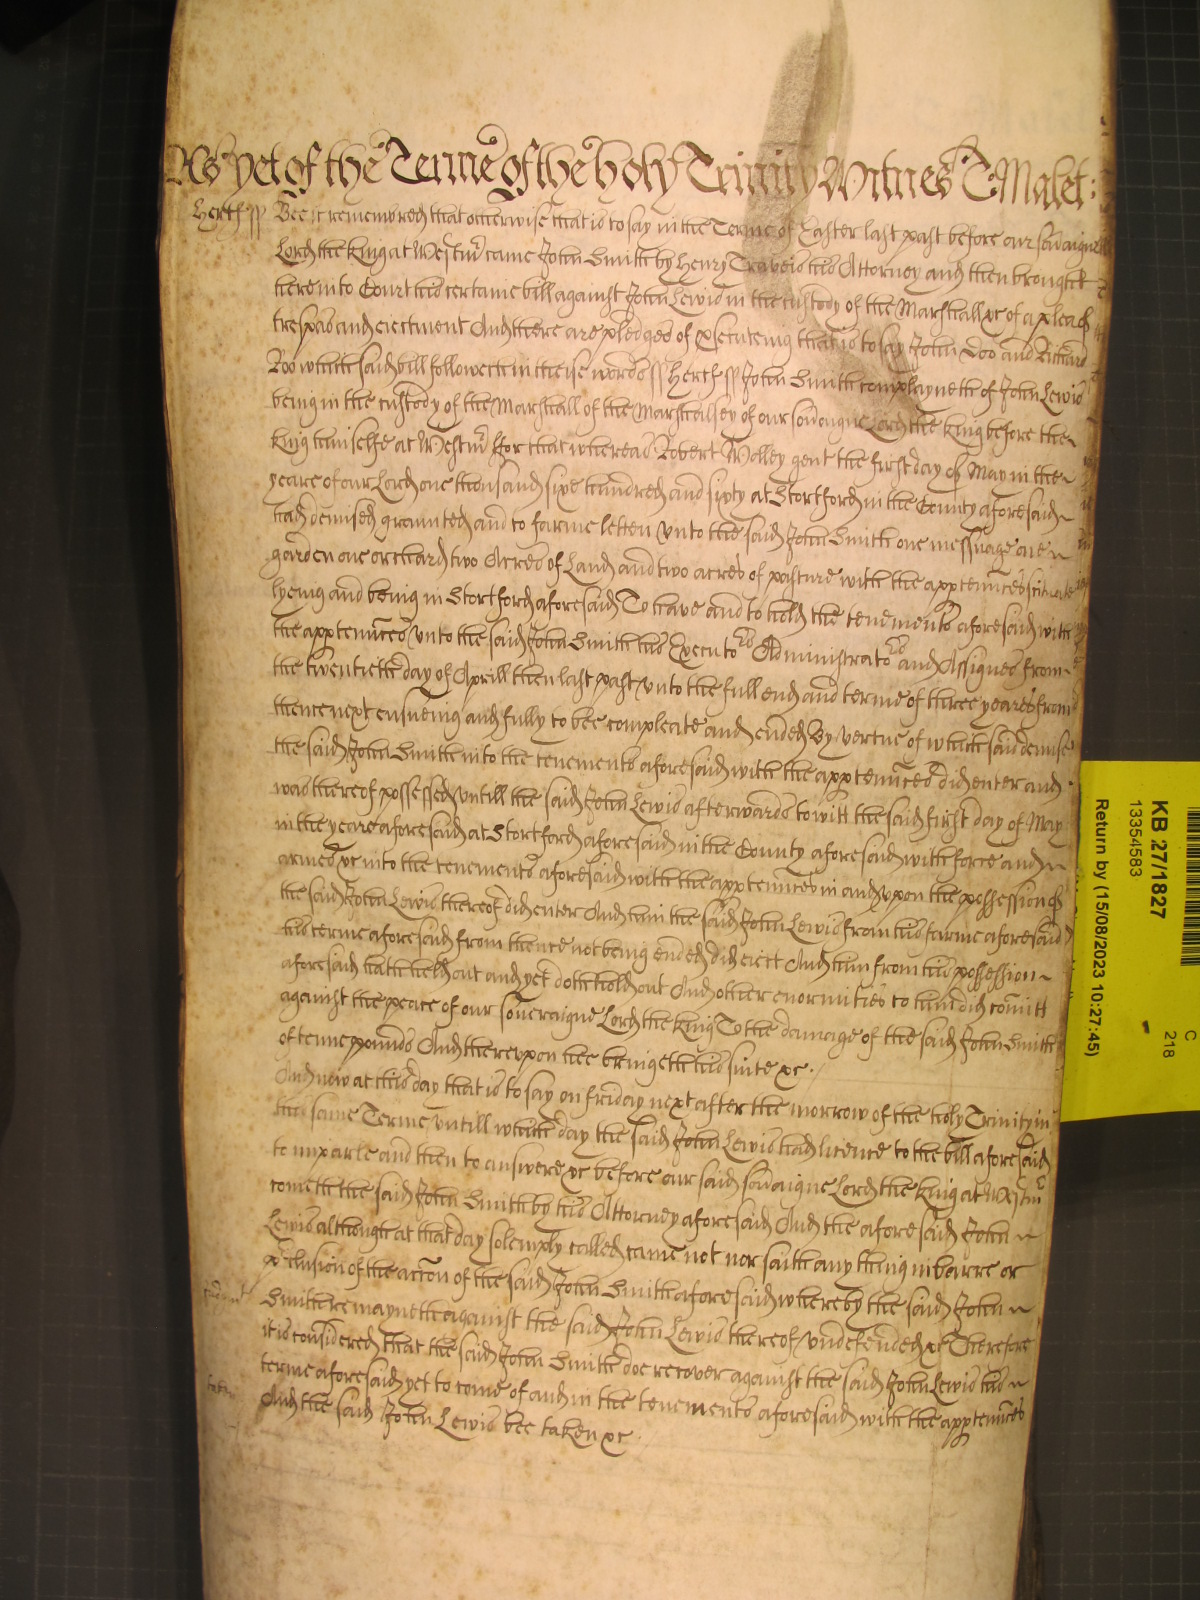 As yet of the Terme of the holy Trinity Witnes T: Malet:
Hertf ss Bee it remembred that otherwise that is to say in the Terme of Easter last past before our sov͠aigne
Lord the King at Westm̃ came John Smith by Henry Traveis his Attorney and then brought
here into Court his certaine bill against John Lewis in the custody of the Marshall &c of a plea of
trespas and eiectment And there are pledges of p̱secuteing that is to say John Doo and Richard
Roo which said bill followeth in theise words ss Hertf ss John Smith complayneth of John Lewis
being in the custody of the Marshall of the Marshalsey of our sov͠aigne Lord the King before the
King himselfe at Westm̃ For that whereas Robert Wolley gent the first day of May in the
yeare of our Lord one thousand sixe hundred and sixty at Stortford in the County aforesaid
had demised graunted and to farme letten unto the said John Smith one messuage one
garden one orchard two Acres of Land and two acres of pasture with the appten̄nces scituate
lyeing and being in Stortford aforesaid To have and to hold the tenements aforesaid with
the appten̄nces unto the said John Smith his Executors Administrators and Assignes from
the twentieth day of Aprill then last past unto the full end and terme of three yeares from
thence next ensueing and fully to bee compleate and ended By vertue of which said demise
the said John Smith into the tenements aforesaid with the appten̄nces did enter and
was thereof possessed untill the said John Lewis afterwards to witt the said first day of May
in the yeare aforesaid at Stortford aforesaid in the County aforesaid with force and
armes &c into the tenements aforesaid with the appten̄nces in and upon the possession of
the said John Lewis thereof did enter And him the said John Lewis from his farme aforesaid
his terme aforesaid from thence not being ended did eiect And him from his possession
aforesaid hath held out and yet doth hold out And other enormities to him did com̄itt
against the peace of our soveraigne Lord the King To the damage of the said John Smith
of tenne pounds And thereupon hee bringeth his suite &c.
And now at this day that is to say on friday next after the morrow of the holy Trinity in
this same Terme untill which day the said John Lewis had licence to the bill aforesaid
to imparle and then to answere &c before our said sov͠aigne Lord the King at Westm̃
cometh the said John Smith by his Attorney aforesaid And the aforesaid John
Lewis althought at that day solemply called came not nor saith any thing in barre or
p̱clusion of the acc̄on of the said John Smith aforesaid whereby the said John
Smith remayneth against the said John Lewis thereof undefended &c Therefore
it is considered that the said John Smith doe recover against the said John Lewis his
terme aforesaid yet to come of and in the tenements aforesaid with the appten̄nces
And the said John Lewis bee taken &c
KB 27/1827
13354583
C
218
Return by (15/08/2023 10:27:45)